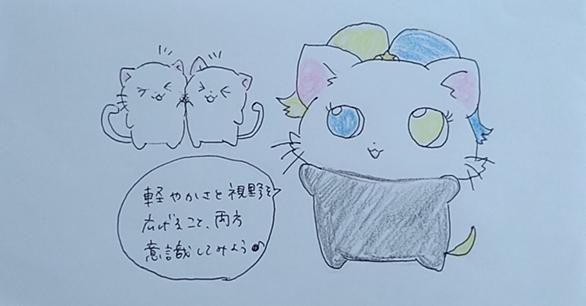 軽やかさと視野を
広げること、両方
意識してみよう♪